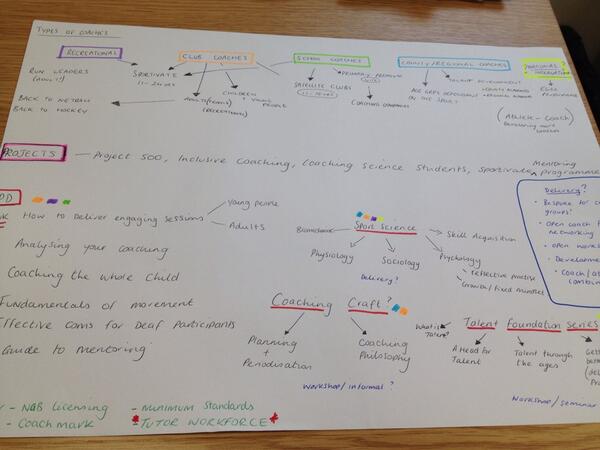 TYPES OF COACHES
RECREATIONAL
CLUB COACHES
SCHOOL COACHES
COUNTY/REGIONAL COACHES
RUN LEADERS
(ADULT)
SPORTIVATE
11-25 YRS
PRIMARY PREMIUM
TALENT DEVELOPMENT
ELITE
PROGRAMME
ADULT (TEAMS)
(RECREATIONAL)
CHILDREN
+ YOUNG
PEOPLE
SATELLITE CLUBS
COACHING COMPANIES
AGE GRPS DEPENDENT
ON THE SPORT
COUNTY ACADEMY
REGIONAL ACADEMY
BACK TO NETBALL
BACK TO HOCKEY
(Athlete - Coach)
PROJECTS
- Project 500, Inclusive coaching, Coaching science students, sportivate
Mentoring
programme
How to deliver engaging sessions
Young people
Adults
Analysing your coaching
Coaching the whole child
Fundamentals of movement
Effective coms for Deaf Participants
Guide to mentoring
Sport Science
Biomechanic
Physiology
Sociology
Psychology
Skill Acquisition
- reflective practise
- Growth/fixed mindset
Delivery?
Coaching Craft?
Planning
+
Periodisation
Coaching
Philosophy
Workshop/informal ?
Delivery?
• Bespoke to
groups!
• Open coach
networking
• open work
• Developme
• Coach/
combin
Talent Foundation series
What is
Talent?
A Head for
Talent
Talent through
the ages
Workshop/seminar
- NGB licensing
- Coachmark
- Minimum Standards
- TUTOR WORKFORCE